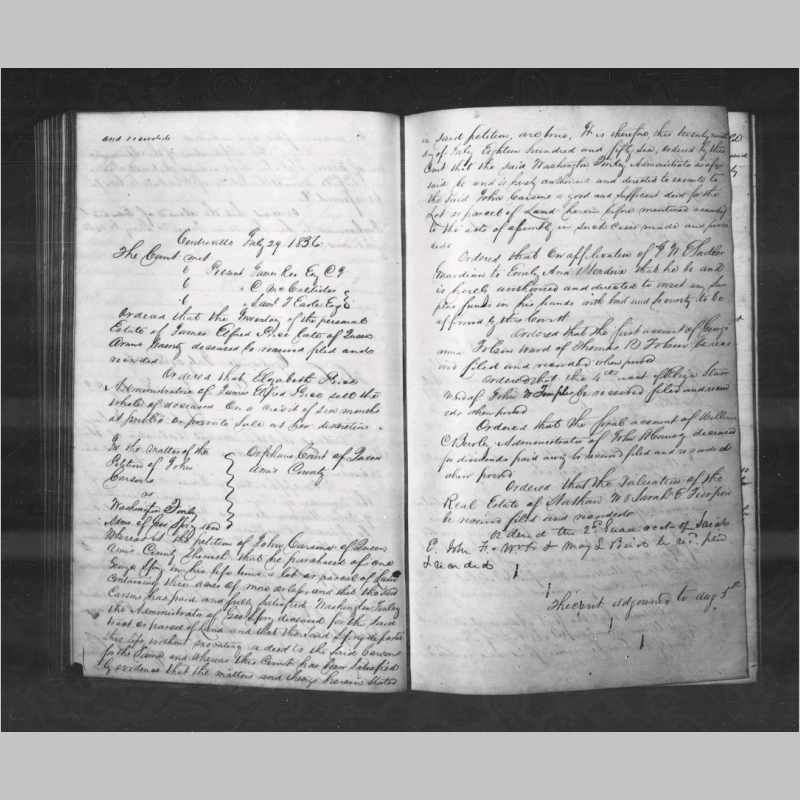 and recorded
Centreville July 29 1856
The Court met
Present James Esq C J
" C McCallister
" Saml T Earle Esqs
Ordered that the Inventory of the personal
Estate of James Alfred Price late of Queen
Anns County deceased be received filed and
recorded
Ordered that Elizabeth Price
Administratrix of James Alfred Price sell the
whole of deceased On a credit of six months
at public or private sale at her discretion
In the matter of the
Petition of John
Carsons
vs
Washington Finley
Admr of Geo Spry decd
Orphans Court of Queen
Ann's County
Whereas the petition of John Carsons of Queen
Ann's County Sheweth that he purchased of one
George Spry in his life time a lot or parcel of Land
containing three acres of more or less and that the said
Carsons has paid and fully satisfied Washington Finley
the Administrator of Geo Spry deceased for the said
tract or parcel of Land and that the said Spry departed
this life without executing a deed to the said Carsons
for the same and whereas this Court has been satisfied
by evidence that the matters and things herein stated
in said petition, are true, It is therefore, this twenty ninth
day of July Eighteen hundred and fifty six, ordered by this
Court that the said Washington Finley Administrator as afore
said be and is hereby authorised and directed to execute to
the said John Carsons a good and sufficient deed for the
Lot or parcel of Land herein before mentioned according
to the acts of assembly in such cases made and provi
ded
Ordered that On application of
Guardian to Emily Ann that he be and
is hereby authorised and directed to invest any sur
plus funds in his hands with bond and security to be
approved by this Court
Ordered that the first account of Georgi
anna Tolson ward of Thomas B Tolson be recei
ved filed and recorded when passed
Ordered that the 4th acct of
Ward of John W be received filed and recor
ded when passed
Ordered that the final account of William
C Administrator of John deceased
for dividends paid away be received filed and recorded
when passed
Ordered that the Valuation of the
Real Estate of Nathan W & Sarah E
be received filed and recorded
Ordered the 2d Guar acct of Sarah
E. John F. & Mary L be recd. filed
& recorded
The court adjourned to Aug 5th